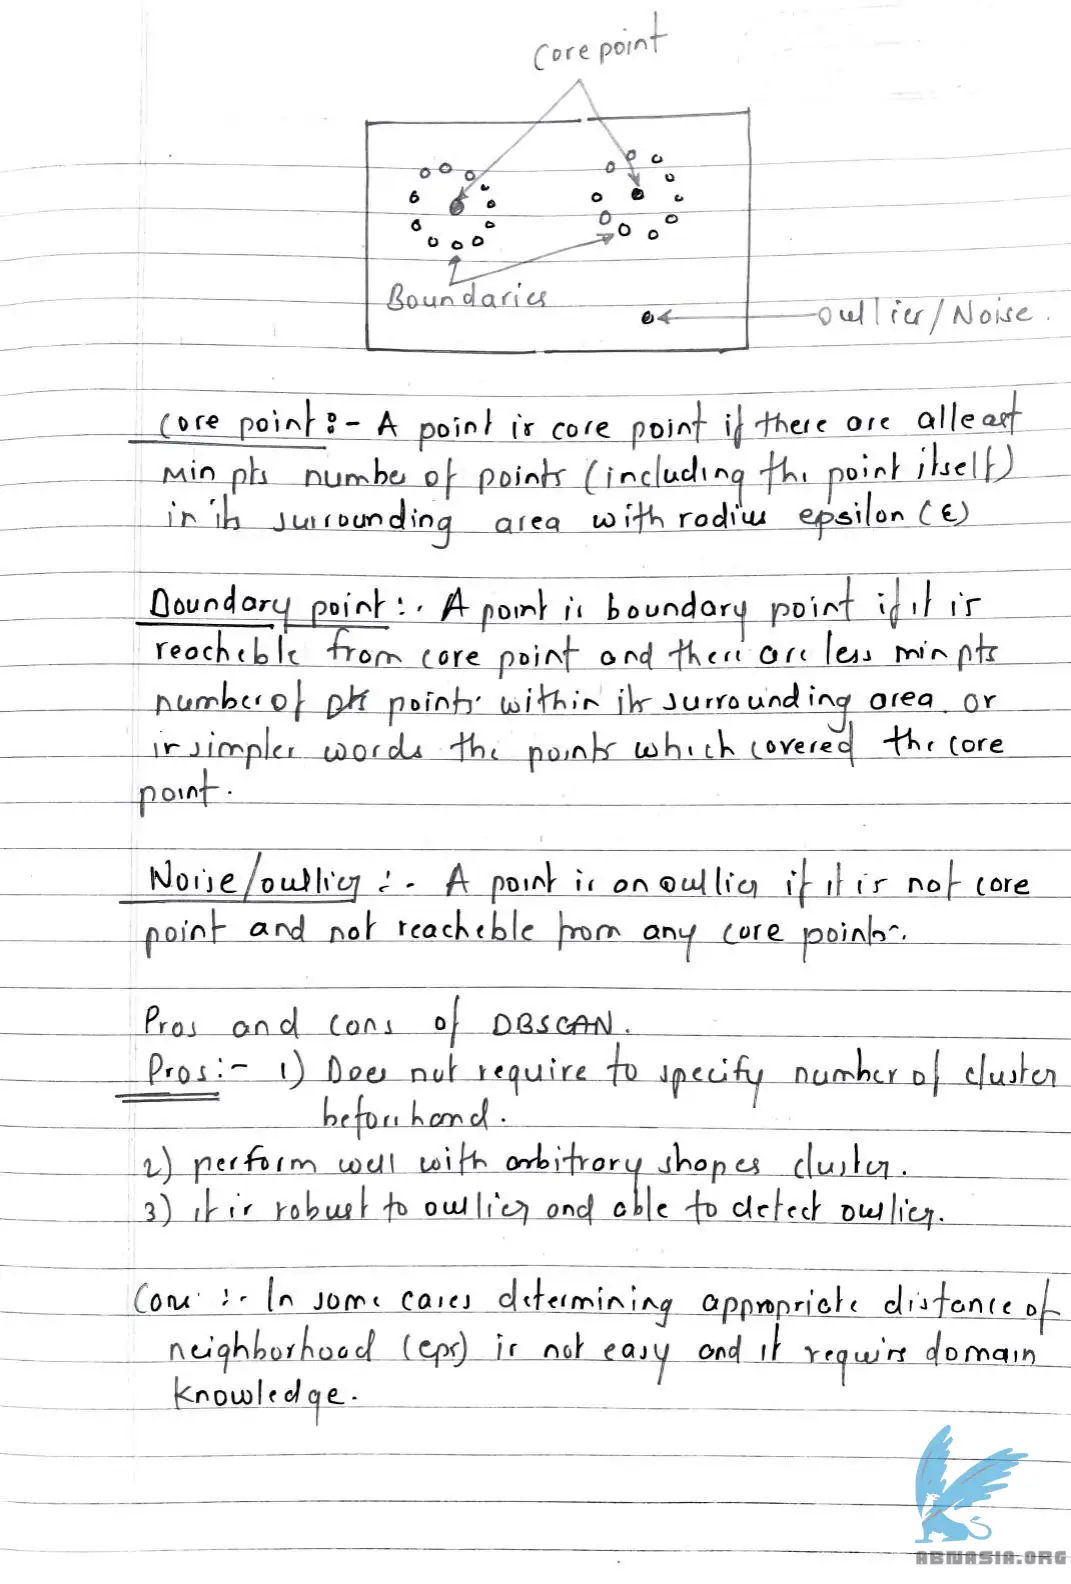 Core point
Boundaries
Outlier/Noise.
Core point :- A point is core point if there are atleast
min pts number of points (including the point itself)
in its surrounding area with radius epsilon (ε)
Boundary point :- A point is boundary point if it is
reacheble from core point and there are less min pts
number of points within its surrounding area. or
in simpler words the points which covered the core
point.
Noise/outlier :- A point is an outlier if it is not core
point and not reacheble from any core points.
Pros and cons of DBSCAN.
Pros :- 1) Does not require to specify number of cluster
beforehand.
2) perform well with arbitrary shapes cluster.
3) it is robust to outlier and able to detect outlier.
Cons :- In some cases determining appropriate distance of
neighborhood (eps) is not easy and it requires domain
knowledge.
ABNASIA.ORG